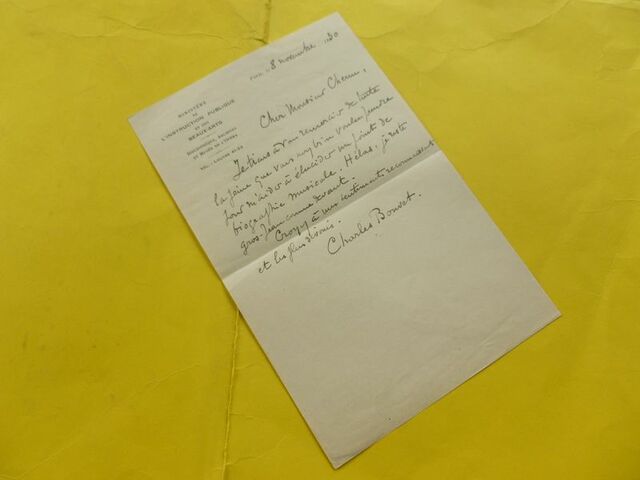 MINISTÈRE
DE
L'INSTRUCTION PUBLIQUE
ET DES
BEAUX-ARTS
BIBLIOTHÈQUE, ARCHIVES
ET MUSÉE DE L'OPÉRA
TÉL. : LOUVRE
Paris, le 8 novembre 1930
Cher Monsieur
Je tiens à vous remercier de toute
la peine que vous avez bien voulu prendre
pour m'aider à élucider un point de
biographie musicale. Hélas, je reste
gros-Jean comme devant.
Croyez à mes sentiments reconnaissants
et les plus
Charles Bouvet.